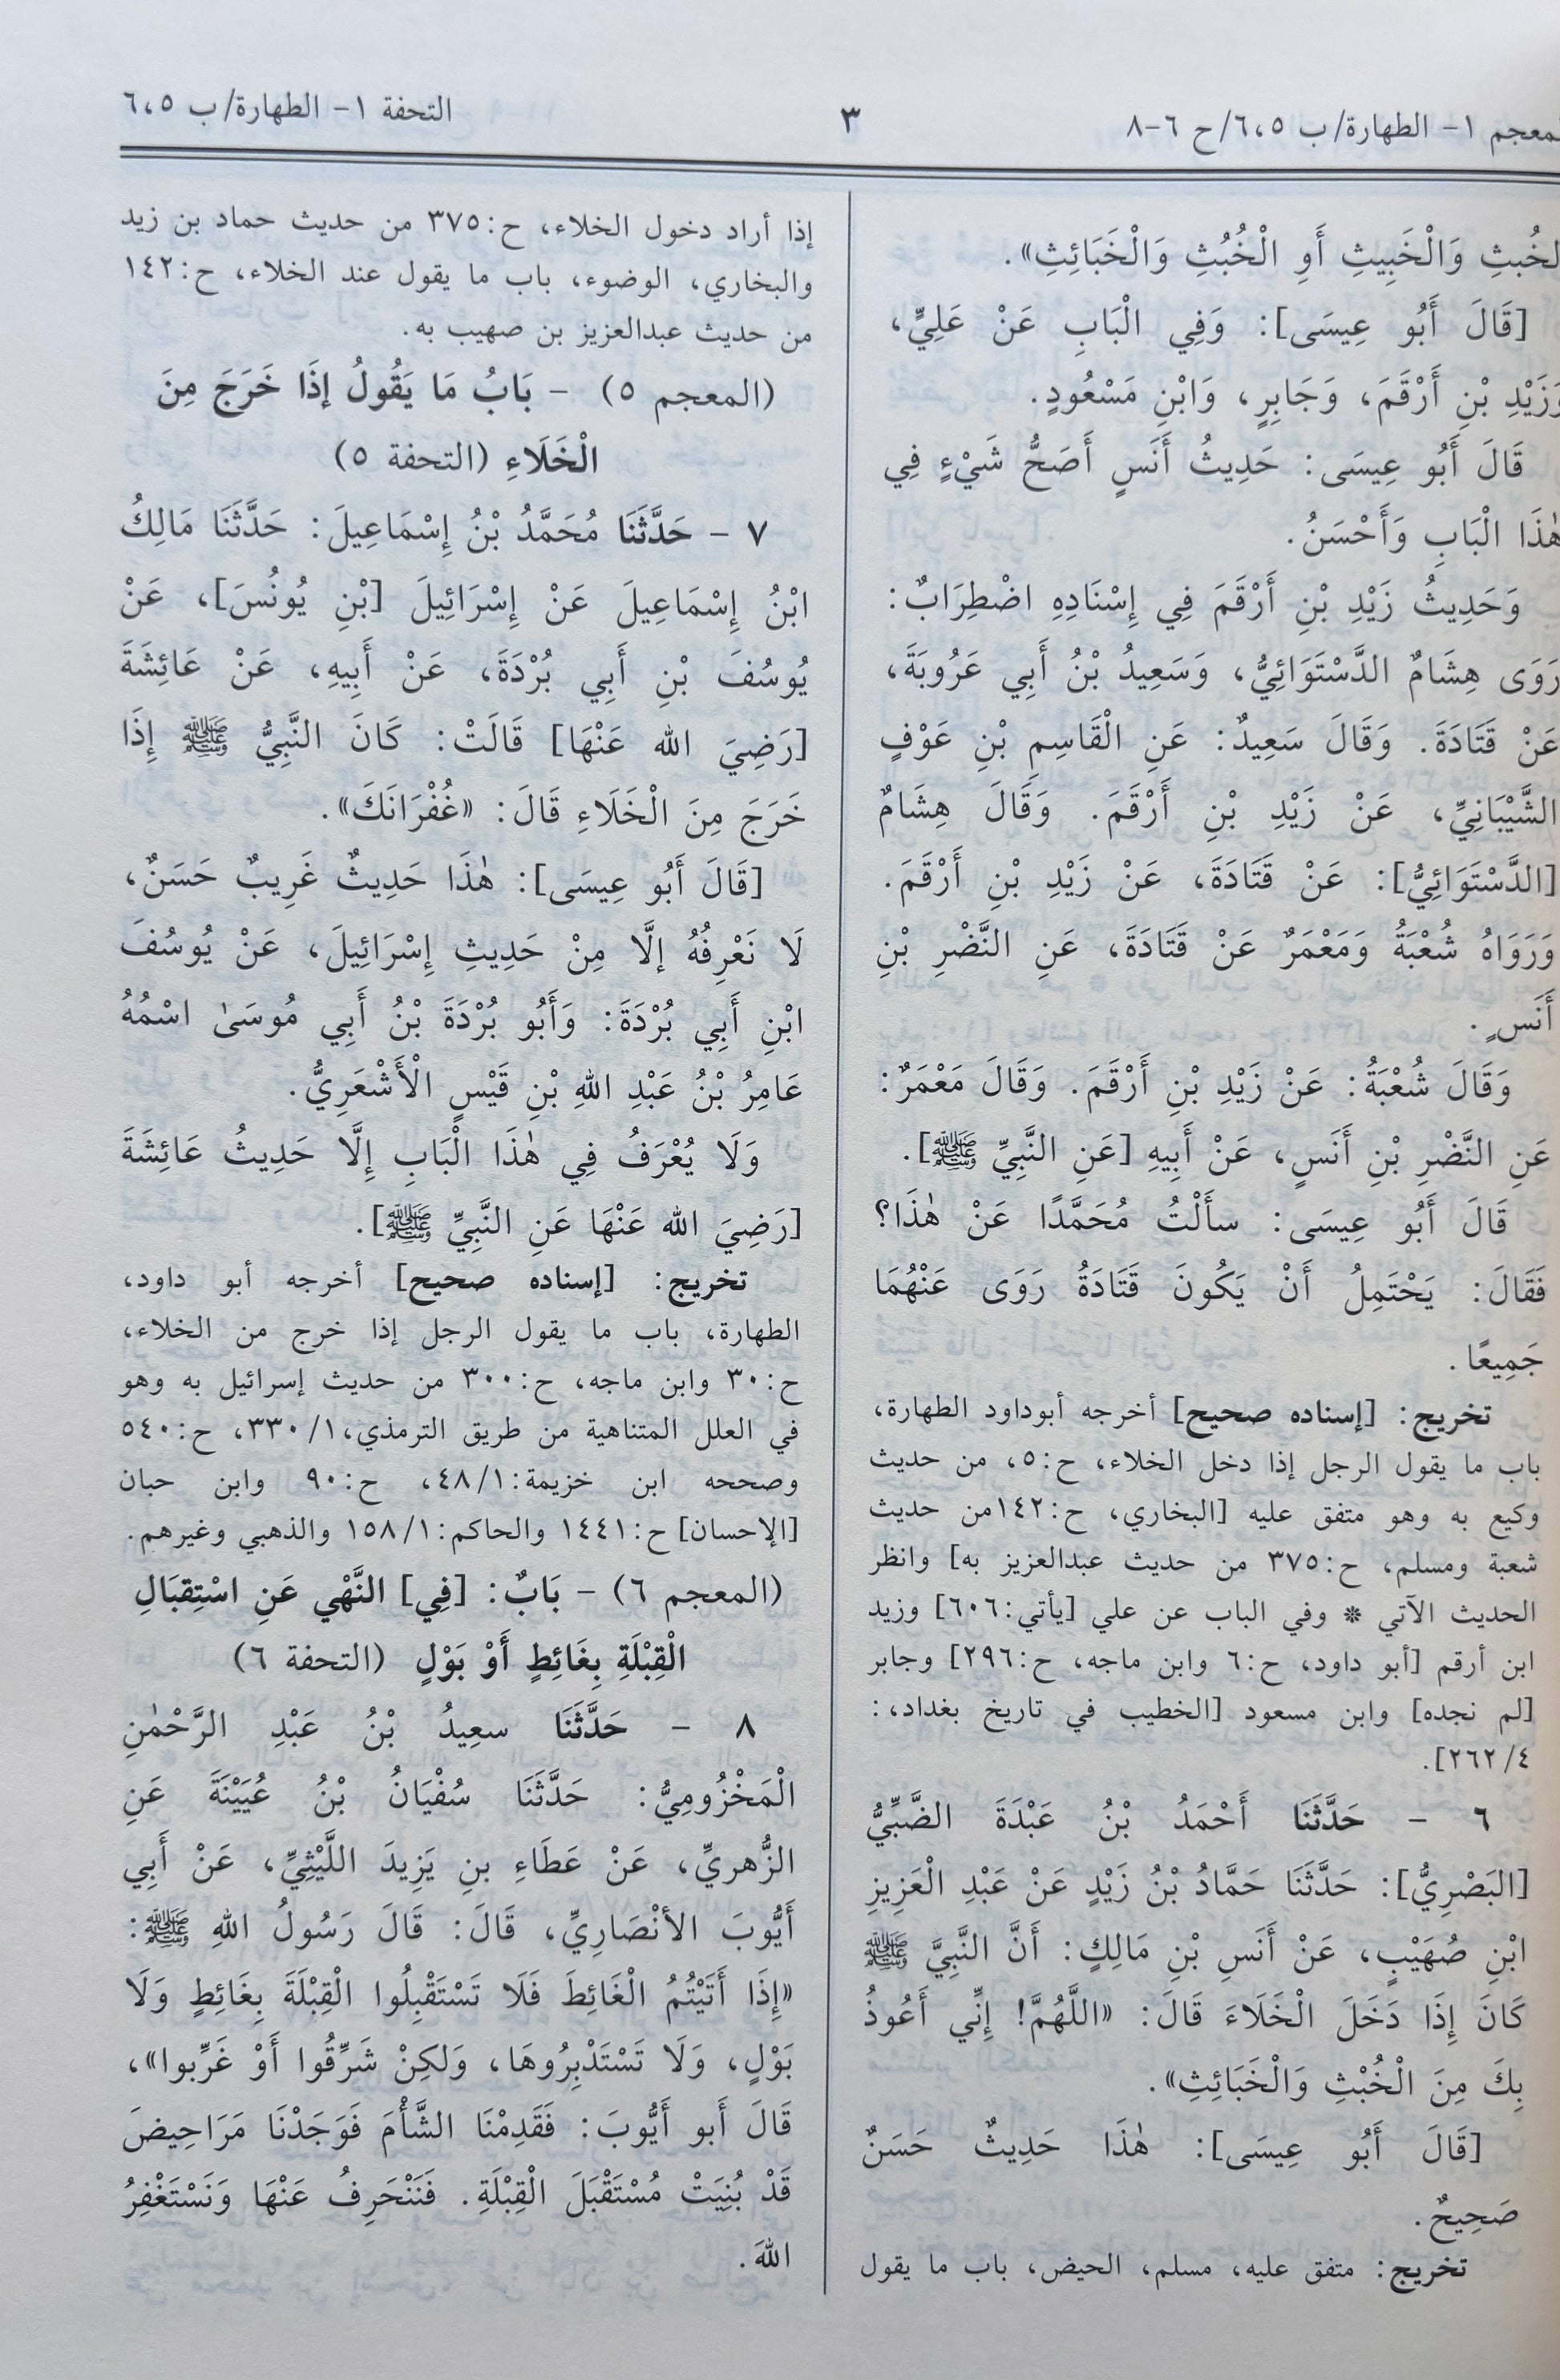 المعجم ١- الطهارة/ ب ٦،٥/ ح ٦-٨
٣
التحفة ١- الطهارة/ ب ٦،٥
الْخُبثِ وَالْخَبِيثِ أَوِ الْخُبُثِ وَالْخَبَائِثِ».
[قَالَ أَبُو عِيسَى]: وَفِي الْبَابِ عَنْ عَلِيٍّ،
وَزَيْدِ بْنِ أَرْقَمَ، وَجَابِرٍ، وَابْنِ مَسْعُودٍ.
قَالَ أَبُو عِيسَى: حَدِيثُ أَنَسٍ أَصَحُّ شَيْءٍ فِي
هٰذَا الْبَابِ وَأَحْسَنُ.
وَحَدِيثُ زَيْدِ بْنِ أَرْقَمَ فِي إِسْنَادِهِ اضْطِرَابٌ:
رَوَى هِشَامٌ الدَّسْتَوَائِيُّ، وَسَعِيدُ بْنُ أَبِي عَرُوبَةَ،
عَنْ قَتَادَةَ. وَقَالَ سَعِيدٌ: عَنِ الْقَاسِمِ بْنِ عَوْفٍ
الشَّيْبَانِيِّ، عَنْ زَيْدِ بْنِ أَرْقَمَ. وَقَالَ هِشَامٌ
[الدَّسْتَوَائِيُّ]: عَنْ قَتَادَةَ، عَنْ زَيْدِ بْنِ أَرْقَمَ.
وَرَوَاهُ شُعْبَةُ وَمَعْمَرٌ عَنْ قَتَادَةَ، عَنِ النَّضْرِ بْنِ
أَنَسٍ.
وَقَالَ شُعْبَةُ: عَنْ زَيْدِ بْنِ أَرْقَمَ. وَقَالَ مَعْمَرٌ:
عَنِ النَّضْرِ بْنِ أَنَسٍ، عَنْ أَبِيهِ [عَنِ النَّبِيِّ ﷺ].
قَالَ أَبُو عِيسَى: سأَلْتُ مُحَمَّدًا عَنْ هٰذَا؟
فَقَالَ: يَحْتَمِلُ أَنْ يَكُونَ قَتَادَةُ رَوَى عَنْهُمَا
جَمِيعًا.
تخريج: [إسناده صحيح] أخرجه أبوداود الطهارة،
باب ما يقول الرجل إذا دخل الخلاء، ح:٥، من حديث
وكيع به وهو متفق عليه [البخاري، ح:١٤٢من حديث
شعبة ومسلم، ح:٣٧٥ من حديث عبدالعزيز به] وانظر
الحديث الآتي * وفي الباب عن علي [يأتي:٦٠٦] وزيد
ابن أرقم [أبو داود، ح:٦ وابن ماجه، ح:٢٩٦] وجابر
[لم نجده] وابن مسعود [الخطيب في تاريخ بغداد،:
٤/ ٢٦٢].
٦ - حَدَّثَنَا أَحْمَدُ بْنُ عَبْدَةَ الضَّبِّيُّ
[البَصْرِيُّ]: حَدَّثَنَا حَمَّادُ بْنُ زَيْدٍ عَنْ عَبْدِ الْعَزِيزِ
ابْنِ صُهَيْبٍ، عَنْ أَنَسِ بْنِ مَالِكٍ: أَنَّ النَّبِيَّ ﷺ
كَانَ إِذَا دَخَلَ الْخَلَاءَ قَالَ: «اللَّهُمَّ! إِنِّي أَعُوذُ
بِكَ مِنَ الْخُبْثِ وَالْخَبَائِثِ».
[قَالَ أَبُو عِيسَى]: هٰذَا حَدِيثٌ حَسَنٌ
صَحِيحٌ.
تخريج: متفق عليه، مسلم، الحيض، باب ما يقول
إذا أراد دخول الخلاء، ح:٣٧٥ من حديث حماد بن زيد
والبخاري، الوضوء، باب ما يقول عند الخلاء، ح:١٤٢
من حديث عبدالعزيز بن صهيب به.
(المعجم ٥) - بَابُ مَا يَقُولُ إذَا خَرَجَ مِنَ
الْخَلَاءِ (التحفة ٥)
٧ - حَدَّثَنَا مُحَمَّدُ بْنُ إِسْمَاعِيلَ: حَدَّثَنَا مَالِكُ
ابْنُ إِسْمَاعِيلَ عَنْ إِسْرَائِيلَ [بْنِ يُونُسَ]، عَنْ
يُوسُفَ بْنِ أَبِي بُرْدَةَ، عَنْ أَبِيهِ، عَنْ عَائِشَةَ
[رَضِيَ الله عَنْهَا] قَالَتْ: كَانَ النَّبِيُّ ﷺ إِذَا
خَرَجَ مِنَ الْخَلَاءِ قَالَ: «غُفْرَانَكَ».
[قَالَ أَبُو عِيسَى]: هٰذَا حَدِيثٌ غَرِيبٌ حَسَنٌ،
لَا نَعْرِفُهُ إلَّا مِنْ حَدِيثِ إِسْرَائِيلَ، عَنْ يُوسُفَ
ابْنِ أَبِي بُرْدَةَ: وَأَبُو بُرْدَةَ بْنُ أَبِي مُوسَىٰ اسْمُهُ
عَامِرُ بْنُ عَبْدِ اللهِ بْنِ قَيْسٍ الْأَشْعَرِيُّ.
وَلَا يُعْرَفُ فِي هٰذَا الْبَابِ إِلَّا حَدِيثُ عَائِشَةَ
[رَضِيَ الله عَنْهَا عَنِ النَّبِيِّ ﷺ].
تخريج: [إسناده صحيح] أخرجه أبو داود،
الطهارة، باب ما يقول الرجل إذا خرج من الخلاء،
ح:٣٠ وابن ماجه، ح:٣٠٠ من حديث إسرائيل به وهو
في العلل المتناهية من طريق الترمذي،١/ ٣٣٠، ح:٥٤٠
وصححه ابن خزيمة:٤٨/١، ح:٩٠ وابن حبان
[الإحسان] ح:١٤٤١ والحاكم:١٥٨/١ والذهبي وغيرهم.
(المعجم ٦) - بَابٌ: [فِي] النَّهْي عَنِ اسْتِقبَالِ
الْقِبْلَةِ بِغَائِطٍ أَوْ بَوْلٍ (التحفة ٦)
٨ - حَدَّثَنَا سعِيدُ بْنُ عَبْدِ الرَّحْمٰنِ
الْمَخْزُومِيُّ: حَدَّثَنَا سُفْيَانُ بْنُ عُيَيْنَةَ عَنِ
الزُّهرِيِّ، عَنْ عَطَاءِ بنِ يَزِيدَ اللَّيْثِيِّ، عَنْ أَبِي
أَيُّوبَ الأنْصَارِيِّ، قَالَ: قَالَ رَسُولُ اللهِ ﷺ:
«إِذَا أَتَيْتُمُ الْغَائِطَ فَلَا تَسْتَقْبِلُوا الْقِبْلَةَ بِغَائِطٍ وَلَا
بَوْلٍ، وَلَا تَسْتَدْبِرُوهَا، وَلكِنْ شَرِّقُوا أَوْ غَرِّبوا»،
قَالَ أَبو أَيُّوبَ: فَقَدِمْنَا الشَّأْمَ فَوَجَدْنَا مَرَاحِيضَ
قَدْ بُنِيَتْ مُسْتَقْبَلَ الْقِبْلَةِ. فَنَنْحَرِفُ عَنْهَا وَنَسْتَغْفِرُ
اللهَ.